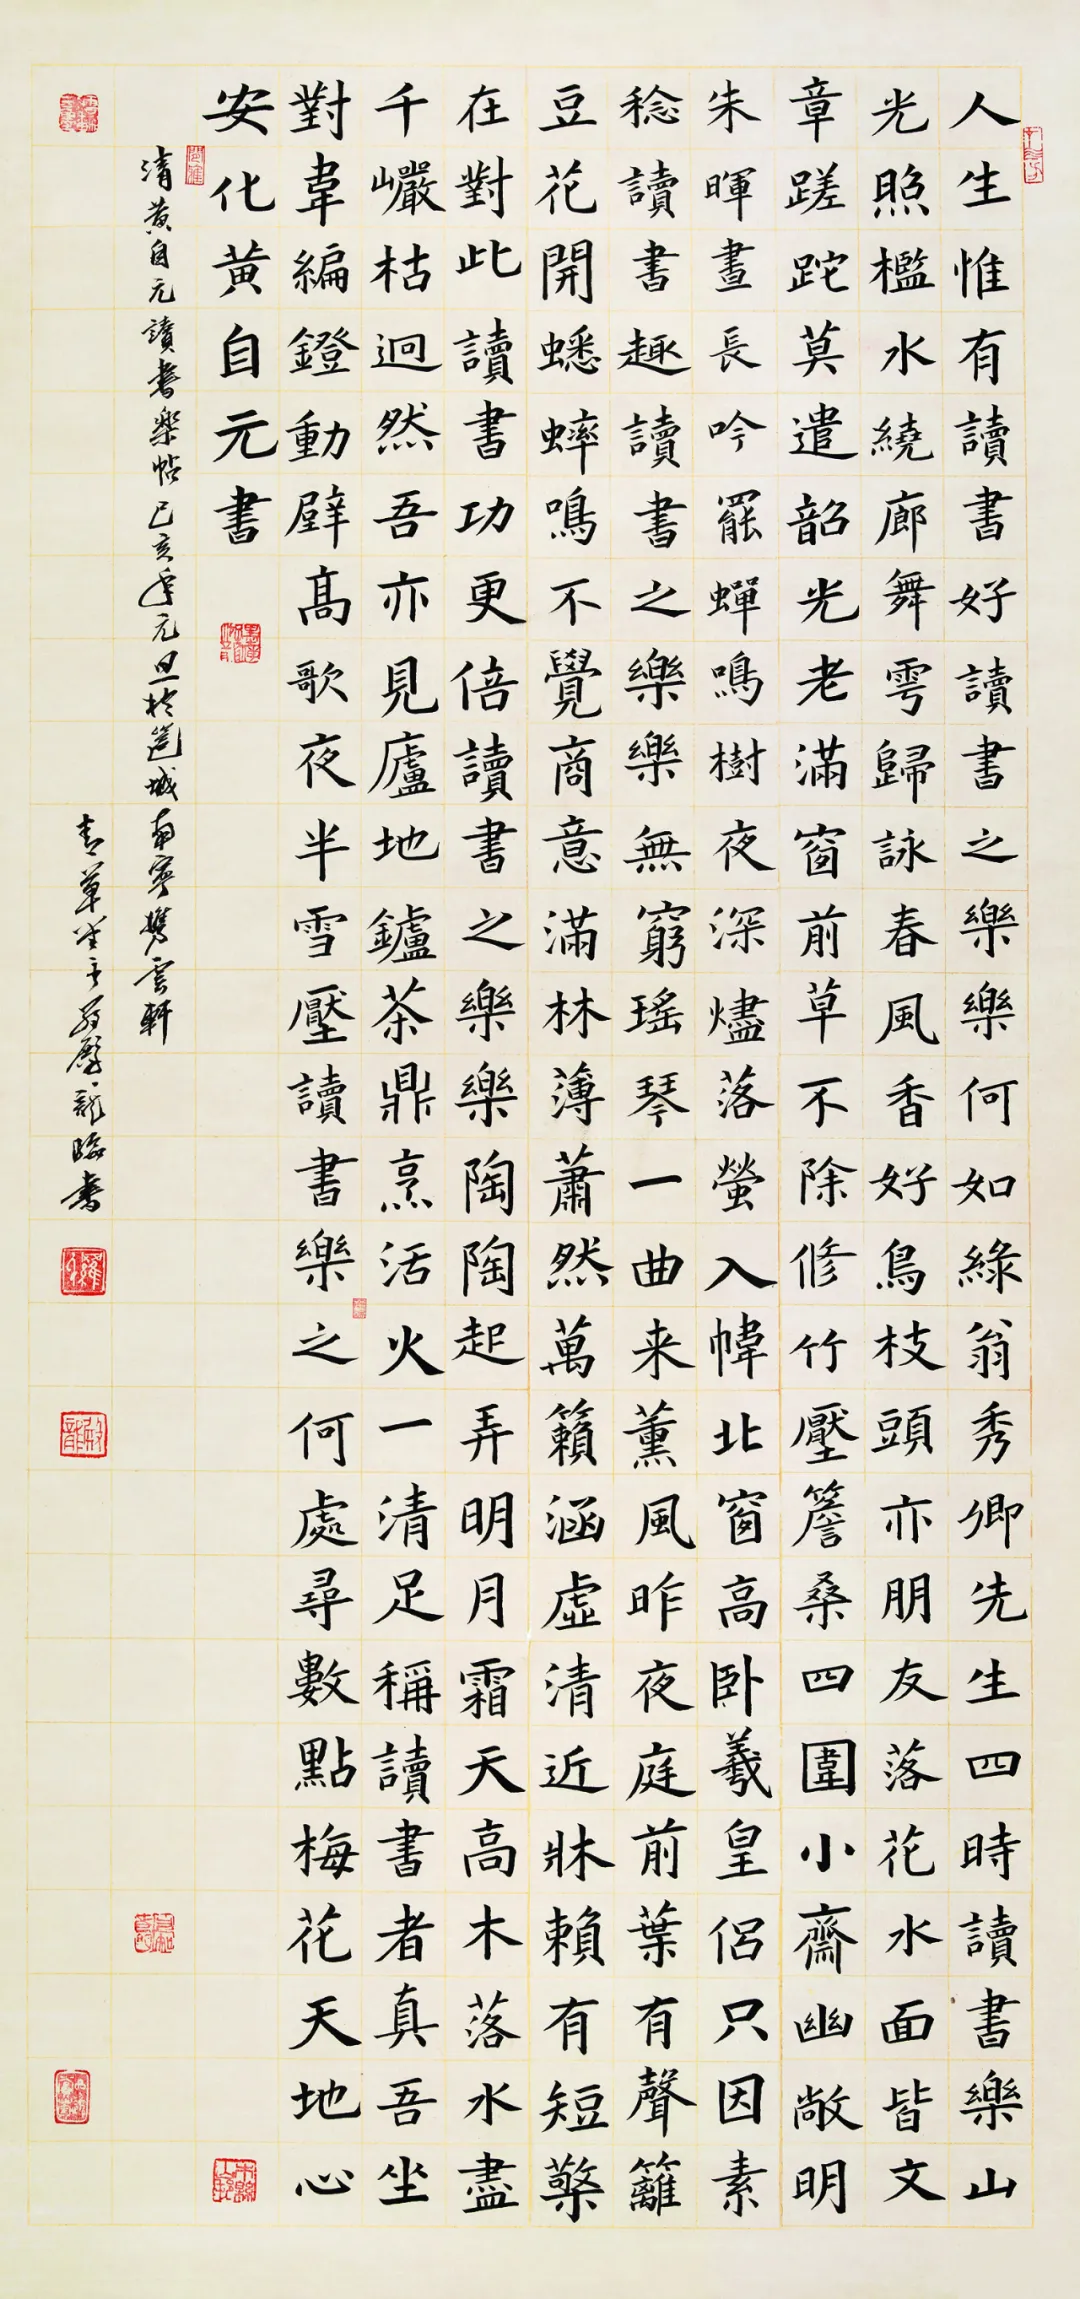 人生惟有讀書好讀書之樂樂何如綠翁秀卿先生四時讀書樂山
光照檻水繞廊舞雩歸詠春風香好鳥枝頭亦朋友落花水面皆文
章蹉跎莫遣韶光老滿窗前草不除修竹壓簷桑四圍小齋幽敞明
朱暉晝長吟罷蟬鳴樹夜深燼落螢入幃北窗高卧羲皇侶只因素
稔讀書趣讀書之樂樂無窮瑤琴一曲来薰風昨夜庭前葉有聲籬
豆花開蟋蟀鳴不覺商意滿林薄蕭然萬籟涵虛清近牀賴有短檠
在對此讀書功更倍讀書之樂樂陶陶起弄明月霜天高木落水盡
千巗枯迥然吾亦見廬地鑪茶鼎烹活火一清足稱讀書者真吾坐
對韋編鐙動壁高歌夜半雪壓讀書樂之何處尋數點梅花天地心
安化黄自元書
清黄自元讀書樂帖己亥年元旦於邕城南寧攬雲軒
龍臨書